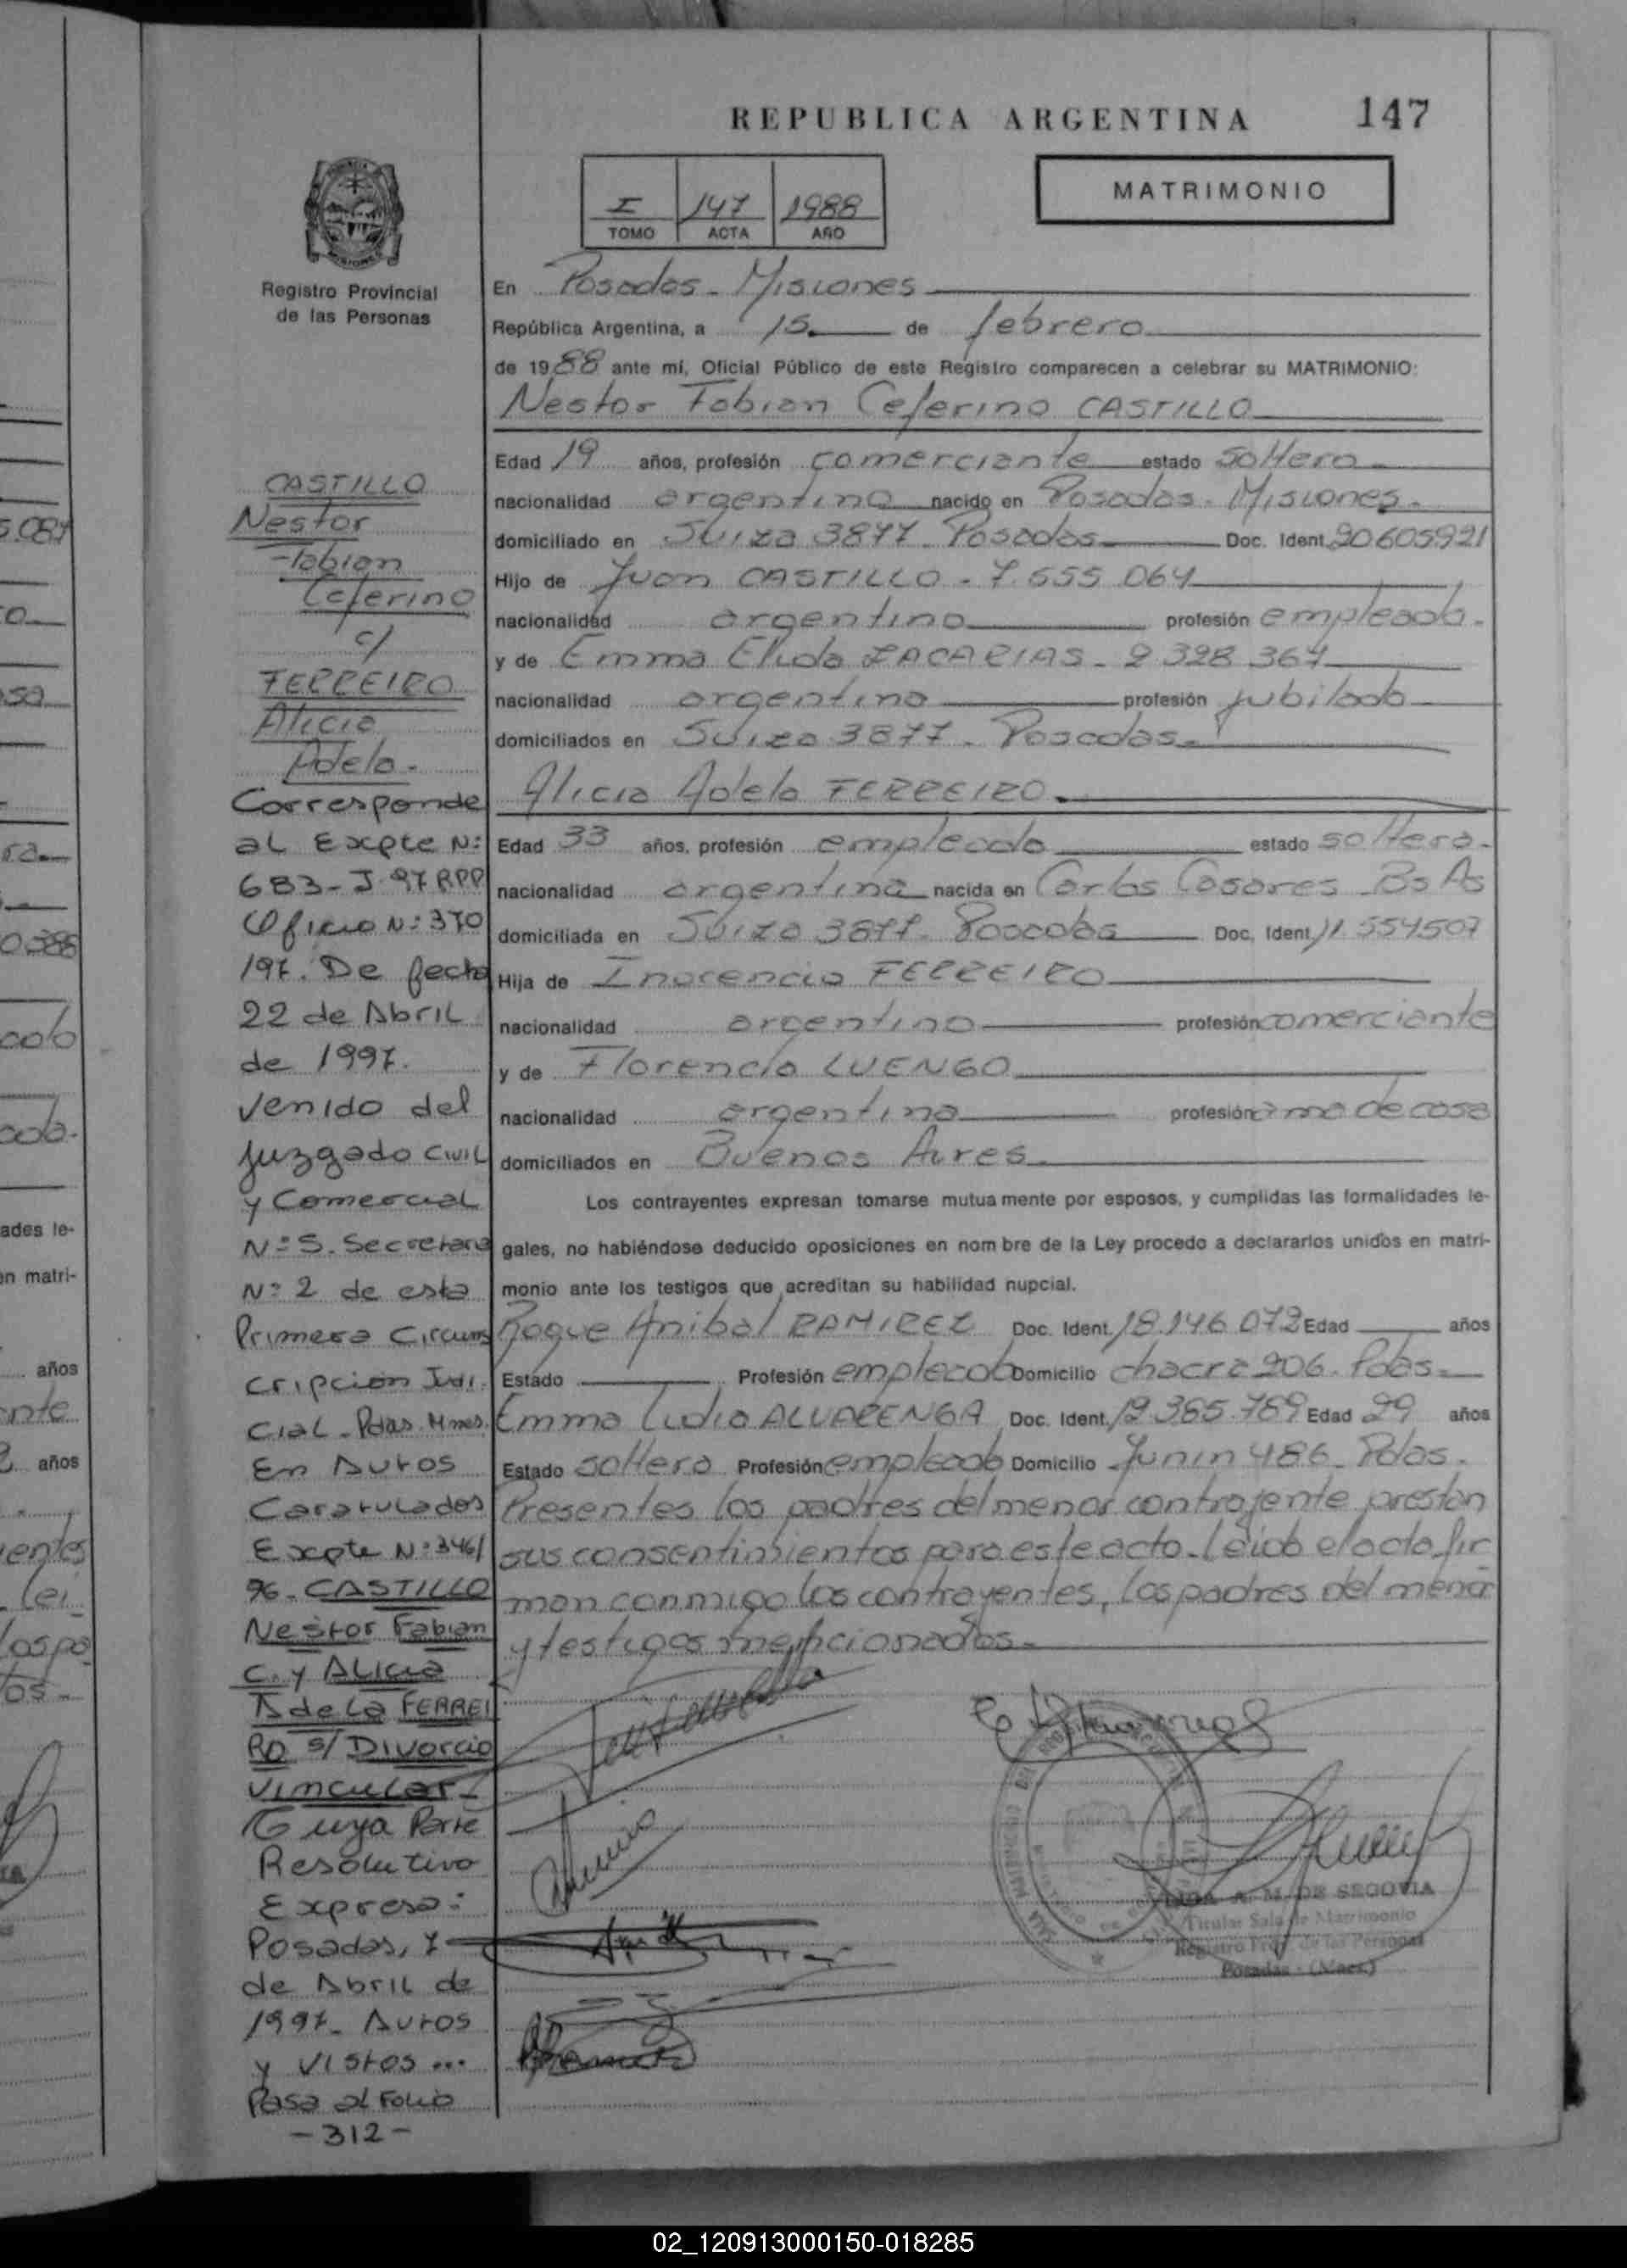 REPUBLICA ARGENTINA 147
MATRIMONIO
I 147 1988
TOMO ACTA AÑO
Registro Provincial
de las Personas
En Posadas - Misiones
República Argentina, a 15 de febrero
de 1988 ante mí, Oficial Público de este Registro comparecen a celebrar su MATRIMONIO:
Nestor Fabian Ceferino CASTILLO
Edad 19 años, profesión comerciante estado soltero
nacionalidad argentina nacido en Posadas - Misiones -
domiciliado en Suiza 3877 - Posadas Doc. Ident. 20605921
Hijo de Juan CASTILLO - 7.555.064
nacionalidad argentina profesión empleado -
y de Emma Elida ZACARIAS - 2.328.364
nacionalidad argentina profesión jubilada
domiciliados en Suiza 3877 - Posadas -
Alicia Adela FERREIRO
Edad 33 años, profesión empleada estado soltera -
nacionalidad argentina nacida en Carlos Casares Bs As
domiciliada en Suiza 3877 - Posadas Doc. Ident. 11.554507
Hija de Inocencio FERREIRO
nacionalidad argentino profesión comerciante
y de Florencia LUENGO
nacionalidad argentina profesión ama de casa
domiciliados en Buenos Aires
Los contrayentes expresan tomarse mutua mente por esposos, y cumplidas las formalidades le-
gales, no habiéndose deducido oposiciones en nom bre de la Ley procedo a declararlos unidos en matri-
monio ante los testigos que acreditan su habilidad nupcial.
Roque Anibal RAMIREZ Doc. Ident. 18.146.072 Edad años
Estado Profesión empleado Domicilio chacra 206 - Pdas -
Emma Lidia ALVARENGA Doc. Ident. 12.385.789 Edad 29 años
Estado soltera Profesión empleada Domicilio Junin 486 - Pdas.
Presentes los padres del menor contrayente prestan
sus consentimientos para este acto - Leida el acta fir
man conmigo los contrayentes, los padres del menor
y testigos mencionados -
CASTILLO
Nestor
Fabian
Ceferino
c/
FERREIRO
Alicia
Adela -
Corresponde
al Expte N:
683 - J - 97 RPP
Oficio N: 370
197. De fecha
22 de Abril
de 1997.
Venido del
Juzgado Civil
y Comercial
N: 5. Secretaria
N: 2 de esta
Primera Circuns
cripcion Judi
cial - Pdas. Mnes.
En Autos
Caratulados
Expte N: 346/
96 - CASTILLO
Nestor Fabian
C. y Alicia
Adela FERREI
RO s/ Divorcio
Vincular -
Cuya Parte
Resolutiva
Expresa:
Posadas, 7
de Abril de
1997 - Autos
y Vistos ...
Pasa al Folio
- 312 -
A. M. DE SEGOVIA
Titular Sala de Matrimonio
Registro Prov. de las Personas
Posadas - (Mnes.)
02_120913000150-018285